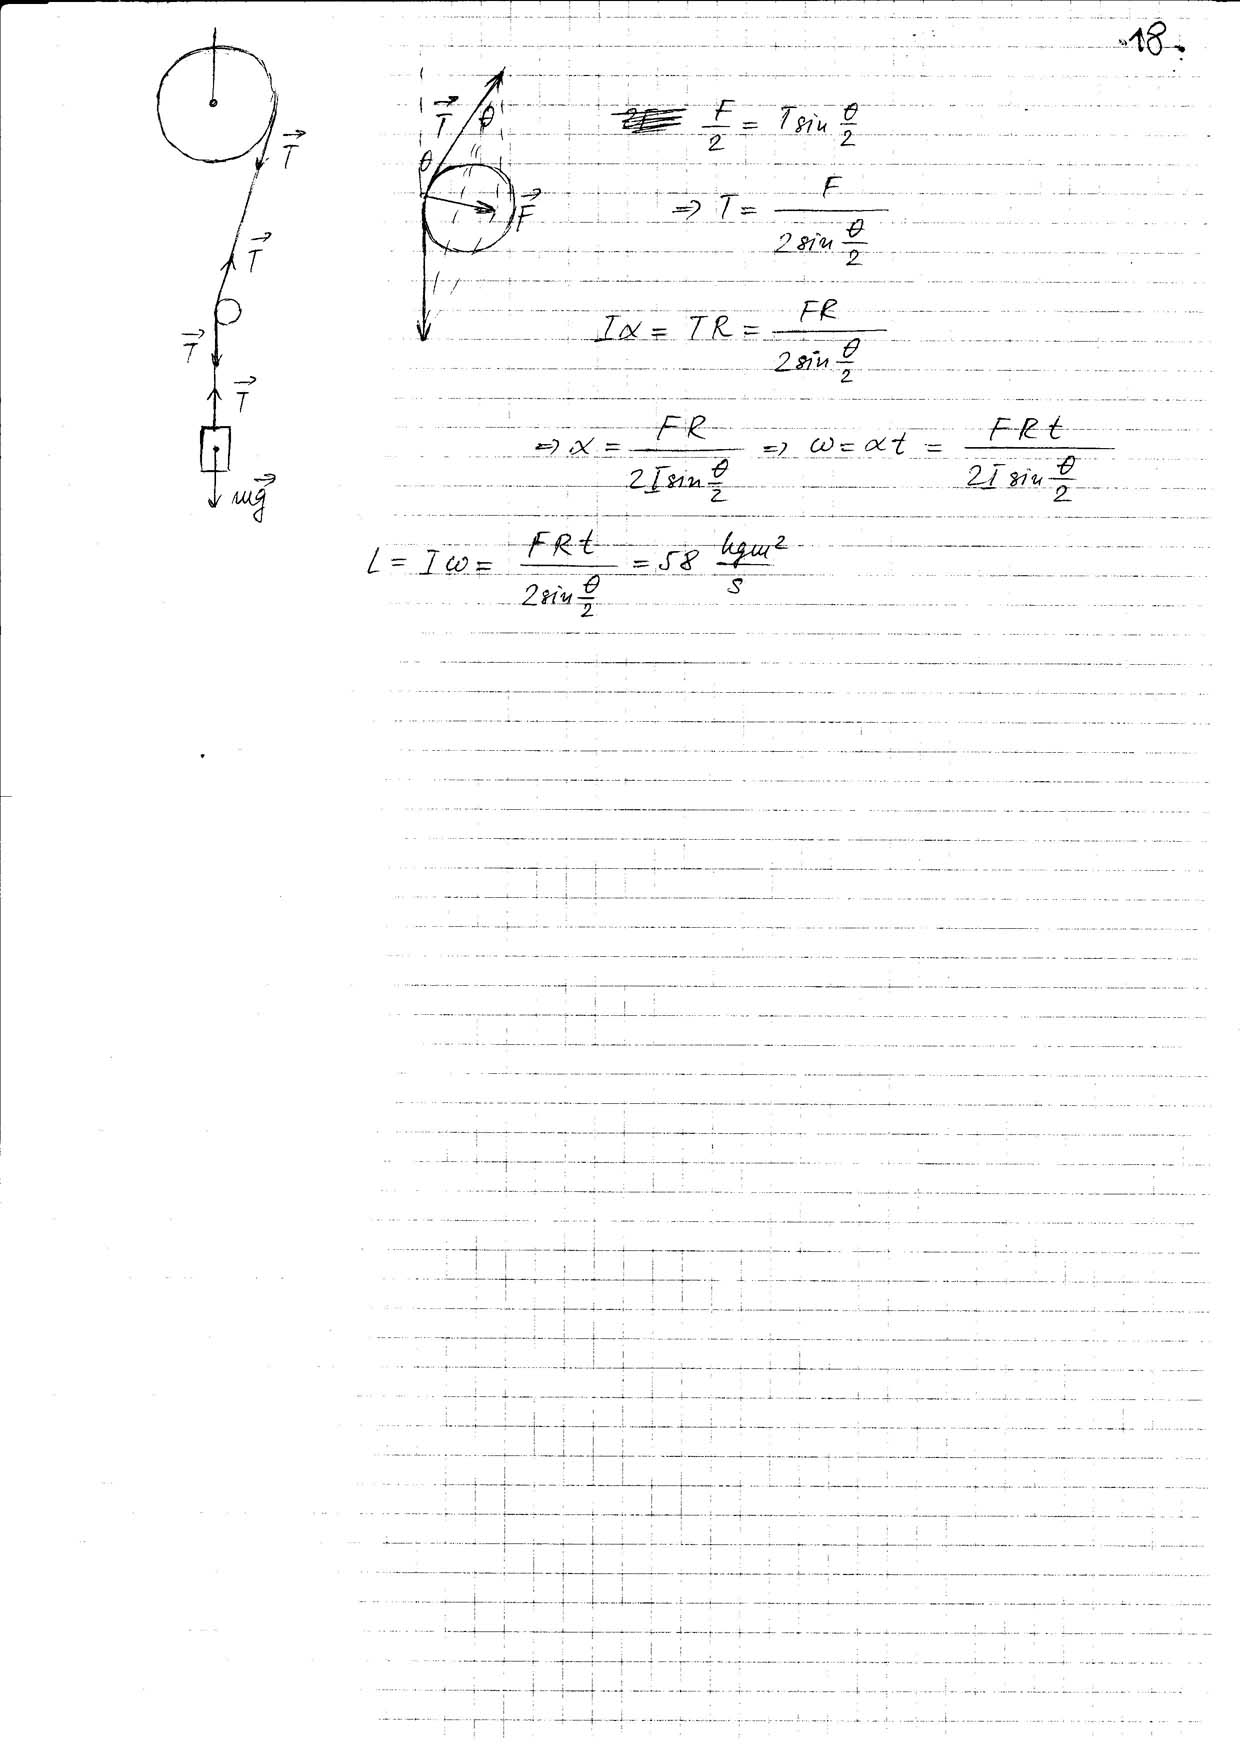 18.
T
T
T
T
mg
T
θ
θ
F
F/2 = T sin θ/2
⇒ T = F / (2 sin θ/2)
Iα = TR = FR / (2 sin θ/2)
⇒ α = FR / (2I sin θ/2) ⇒ ω = αt = FRt / (2I sin θ/2)
L = Iω = FRt / (2 sin θ/2) = 58 kgm²/s